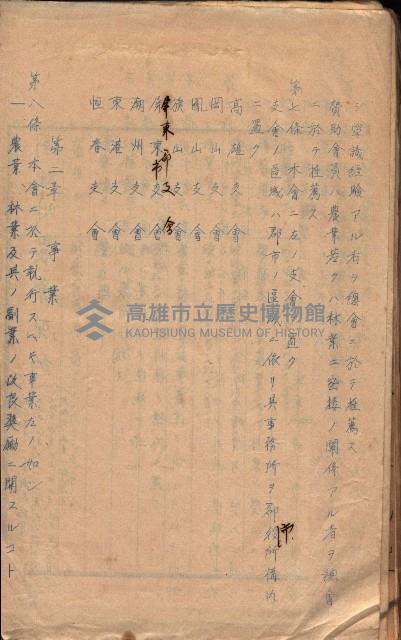 シ学識経験アル者ヲ総会ニ於テ推薦ス
賛助会員ハ農業若クハ林業ニ密接ノ関係アル者ヲ総会
ニ於テ推薦ス
第七條 本會ニ左ノ支會ヲ置ク
支會ノ區域ハ郡市ノ區域ニ依リ其事務所ヲ郡役所構内
市
ニ置ク
高雄支會
岡山支會
鳳山支會
旗山支會
屏東郡支會
屏東市支會
潮州支會
東港支會
恒春支會
第二章 事業
第八條 本會ニ於テ執行スヘキ事業左ノ如シ
一 農業、林業及其ノ副業ノ改良奨勵ニ関スルコト
高雄市立歷史博物館
KAOHSIUNG MUSEUM OF HISTORY